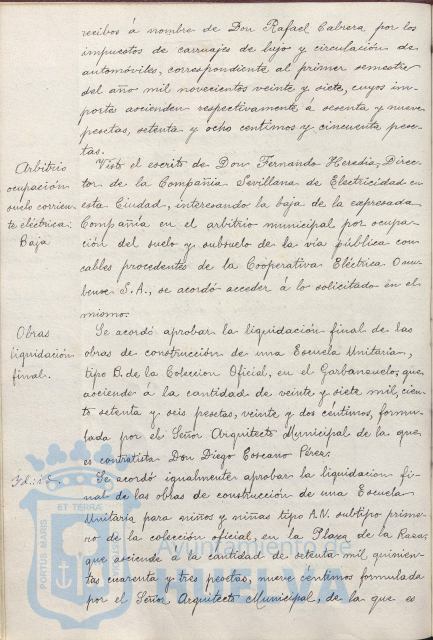 recibos á nombre de Don Rafael Cabrera por los
impuestos de carruajes de lujo y circulación de
automóviles, correspondiente al primer semestre
del año mil novecientos veinte y siete, cuyos im-
porte ascienden respectivamente á sesenta y nueve
pesetas, setenta y ocho centimos y cincuenta pese-
tas.
Arbitrio
ocupación
suelo corrien-
te eléctrica:
Baja
Visto el escrito de Don Fernando Heredia, Direc-
tor de la Compañia Sevillana de Electricidad en
esta Ciudad, interesando la baja de la expresada
Compañía en el arbitrio municipal por ocupa-
ción del suelo y subsuelo de la via pública con
cables procedentes de la Cooperativa Eléctrica Onu-
bense S.A., se acordó acceder á lo solicitado en el
mismo.
Obras
liquidación
final.
Se acordó aprobar la liquidación final de las
obras de construcción de una Escuela Unitaria,
tipo B. de la Coleccion Oficial, en el Garbanzuelo, que
asciende á la cantidad de veinte y siete mil, cien-
to setenta y seis pesetas, veinte y dos céntimos, formu-
lada por el Señor Arquitecto Municipal de la que
es contratista Don Diego Toscano Pérez.
Id: id.
Se acordó igualmente aprobar la liquidacion fi-
nal de las obras de construcción de una Escuela
Unitaria para niños y niñas tipo A.N. subtipo prime-
ro de la colección oficial, en la Plaza de la Rasa,
que asciende á la cantidad de setenta mil, quinien-
tas cuarenta y tres pesetas, nueve céntimos formulada
por el Señor Arquitecto Municipal, de la que es
PORTUS MARIS
ET TERRAE
Ayuntamiento de
HUELVA